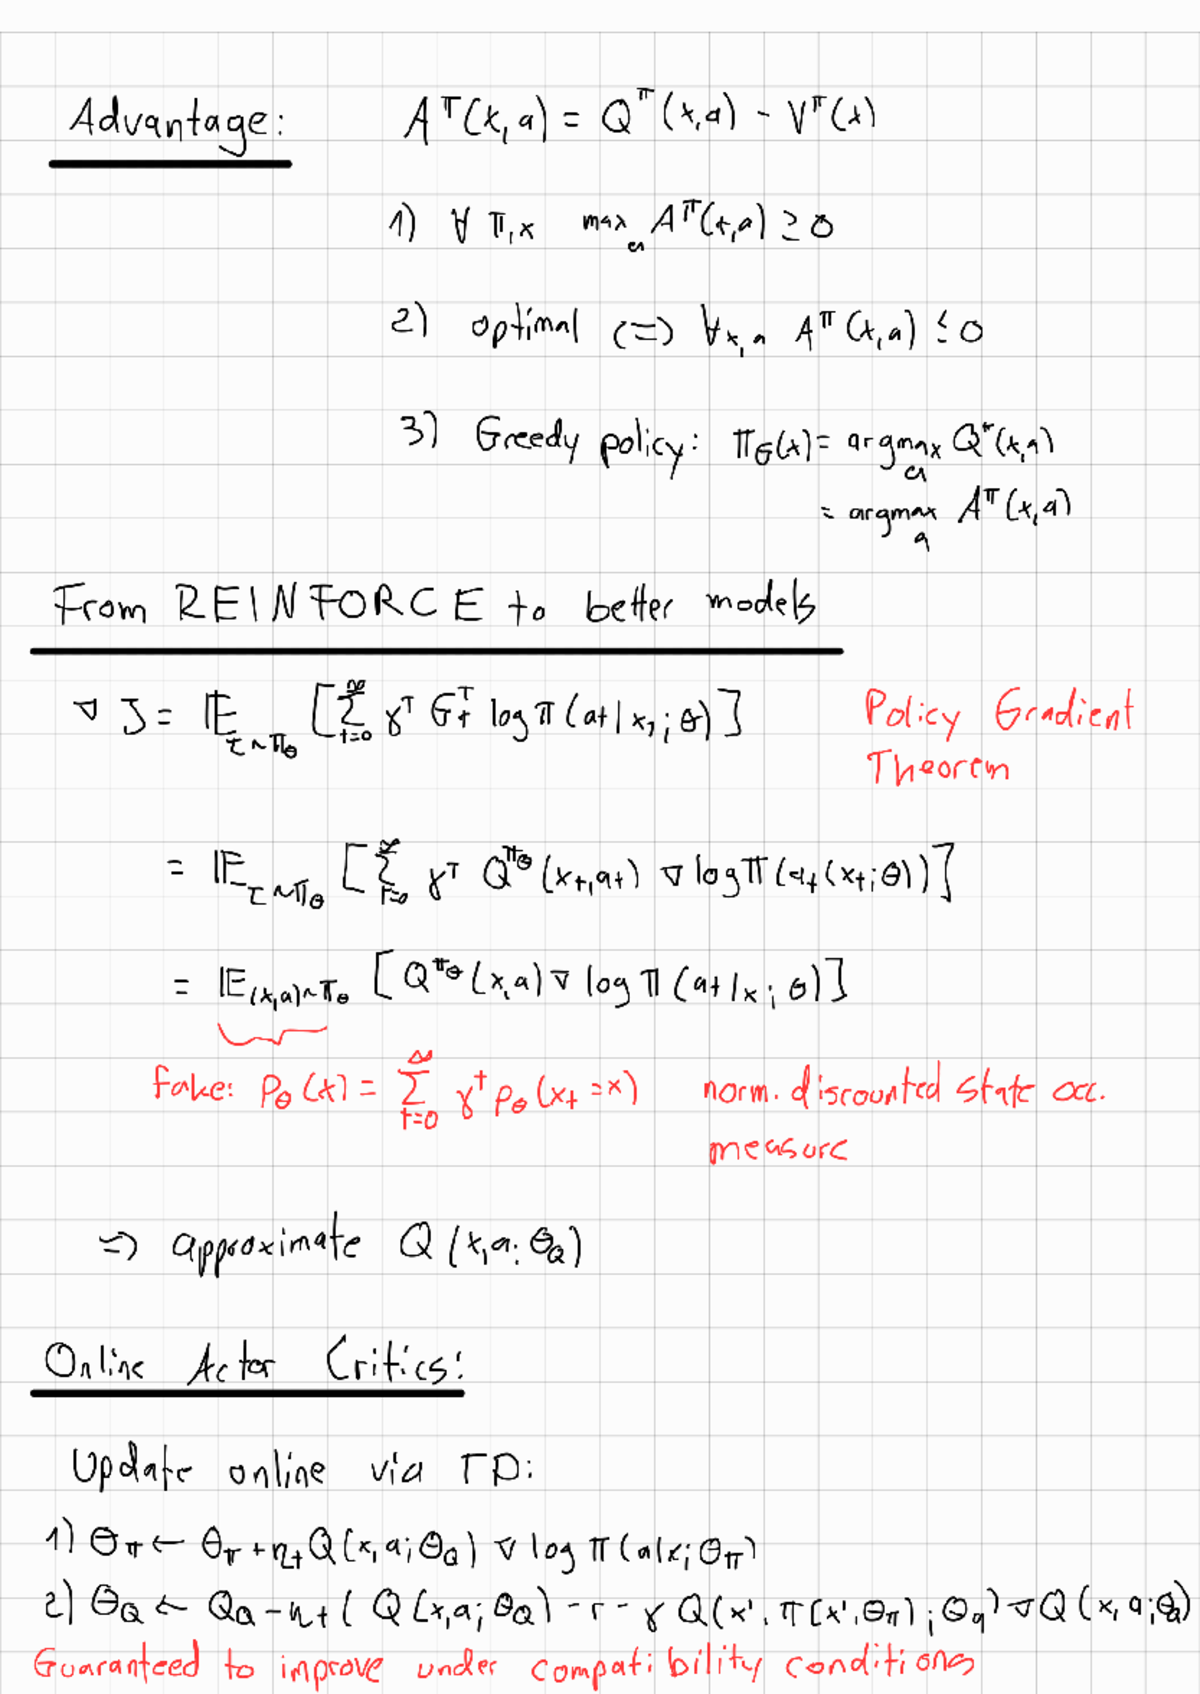 Advantage: A^π(x, a) = Q^π(x,a) - V^π(x)
1) ∀ π, x max_a A^π(x,a) ≥ 0
2) optimal (=) ∀x, a A^π(x,a) ≤ 0
3) Greedy policy: π_G(x) = argmax_a Q^π(x,a)
= argmax_a A^π(x,a)
From REINFORCE to better models
∇ J = 𝔼_{τ~π_θ} [∑_{t=0}^∞ γ^T G_t^T log π(at|x,; θ)] Policy Gradient
Theorem
= 𝔼_{τ~π_θ} [∑_{t=0}^∞ γ^T Q^{π_θ}(xt,at) ∇ log π(at(xt; θ))]
= 𝔼_{(x,a)~π_θ} [Q^{π_θ}(x,a) ∇ log π(at|x; θ)]
fake: p_θ(x) = ∑_{t=0}^∞ γ^t p_θ(x_t = x) norm. discounted state occ.
measure
=> approximate Q(x,a; θ_Q)
Online Actor Critics:
Update online via TD:
1) θ_π ← θ_π + η_t Q(x, a; θ_Q) ∇ log π(a|x; θ_π)
2) θ_Q ← Q_Q - η_t( Q(x,a; θ_Q) - r - γ Q(x', π(x',θ_π); θ_Q) ∇Q(x, a; θ_Q)
Guaranteed to improve under compatibility conditions